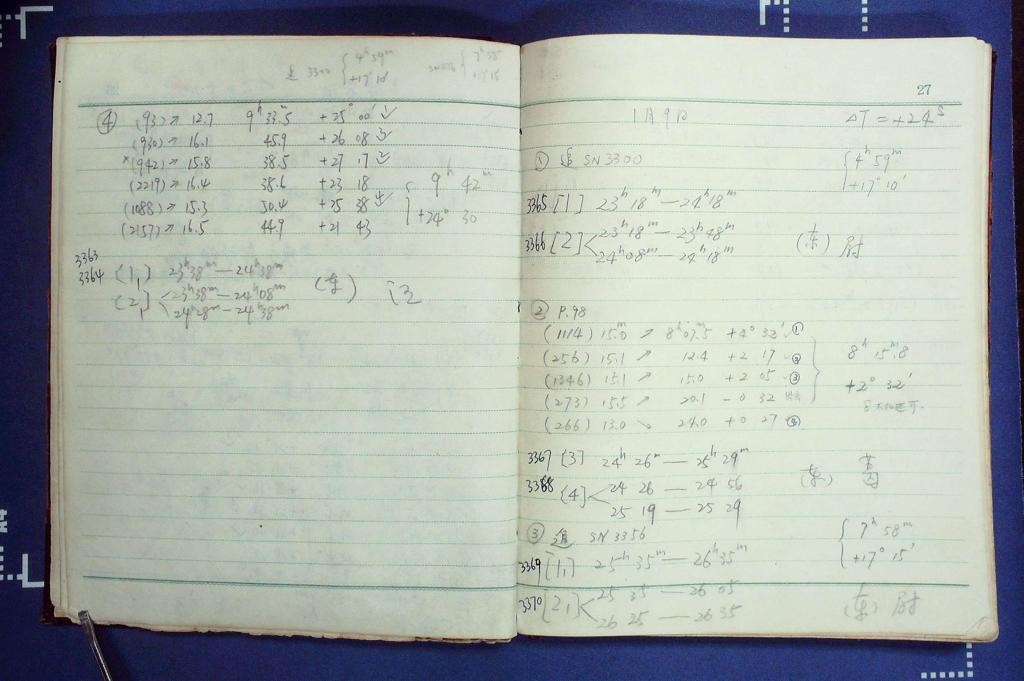 追 3300 { 4ʰ 59ᵐ
+17° 10′
SN3356 { 7ʰ 58
+17° 15
④ (93) ↗ 12.7 9ʰ 33ᵐ.5 +25° 00′ ✓
(930) ↗ 16.1 45.9 +26 08
*(942) ↗ 15.8 38.5 +27 17
(2219) ↗ 16.4 38.6 +23 18
(1088) ↗ 15.3 50.4 +25 38
(2157) ↗ 16.5 44.9 +21 43
{ 9ʰ 42ᵐ
+24° 30
3363
3364 [1₁] 23ʰ38ᵐ — 24ʰ38ᵐ
[2₁] < 23ʰ38ᵐ — 24ʰ08ᵐ
24ʰ28ᵐ — 24ʰ38ᵐ
(东) 汪
27
1月9日 ΔT = +24ˢ
① 追 SN3300 { 4ʰ 59ᵐ
+17° 10′
3365 [1] 23ʰ18ᵐ — 24ʰ18ᵐ
3366 [2] < 23ʰ18ᵐ — 23ʰ48ᵐ (东) 尉
24ʰ08ᵐ — 24ʰ18ᵐ
② P.98
(1114) 15.0ᵐ ↗ 8ʰ07ᵐ.5 +4° 32′ ①
(256) 15.1 ↗ 12.4 +2 17 ②
(1346) 15.1 ↗ 15.0 +2 05 ③
(273) 15.5 ↗ 20.1 -0 32
(266) 13.0 ↘ 24.0 +0 27 ④
} 8ʰ 15ᵐ.8
+2° 32′
3367 [3] 24ʰ 26ᵐ — 25ʰ 29ᵐ
3368 [4] < 24 26 — 24 56 (东)
25 19 — 25 29
③ 追 SN 3356 { 7ʰ 58ᵐ
+17° 15′
3369 [1₁] 25ʰ 35ᵐ — 26ʰ35ᵐ
3370 [2₁] < 25 35 — 26 05 (东) 尉
26 25 — 26 35